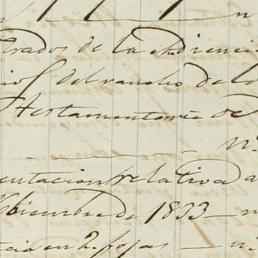 trados de la Audiencia
del rancho de la
Testamentaria de
Nº
entacion relativa a
biembre de 1833
cio en 2 fojas